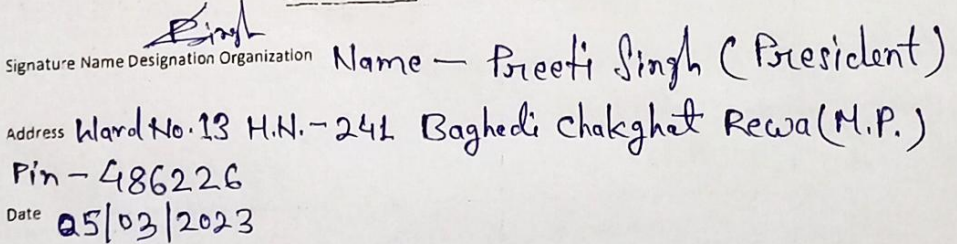 Singh
Signature Name Designation Organization Name - Preeti Singh (President)
Address Ward No. 13 H.N. - 241 Baghedi Chakghat Rewa (M.P.)
Pin - 486226
Date 05/03/2023